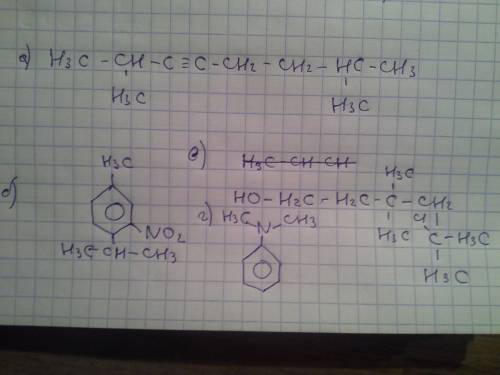 а) H₃C - CH - C ≡ C - CH₂ - CH₂ - HC - CH₃
H₃C H₃C
б) H₃C
NO₂
H₃C - CH - CH₃
в) H₃C - CH - CH
H₃C
HO - H₂C - H₂C - C - CH₂
H₃C Cl
C - H₃C
H₃C
г) H₃C CH₃
N